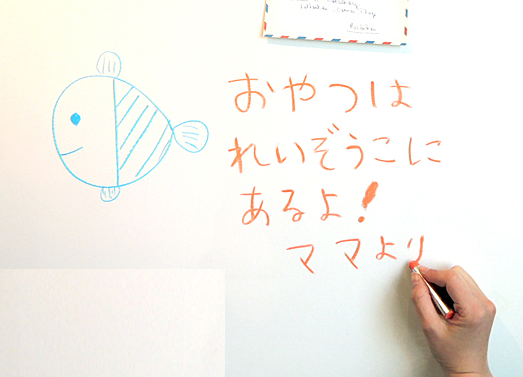 おやつは
れいぞうこに
あるよ!
ママより